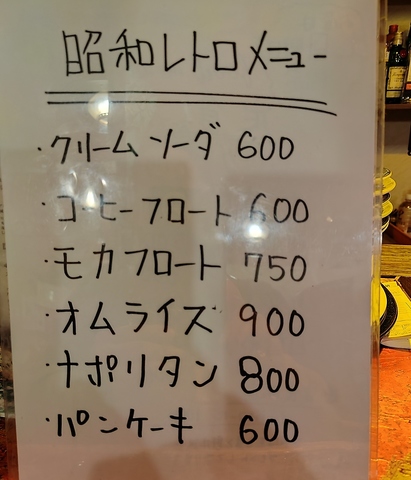 昭和レトロメニュー
・クリームソーダ 600
・コーヒーフロート 600
・モカフロート 750
・オムライズ 900
・ナポリタン 800
・パンケーキ 600